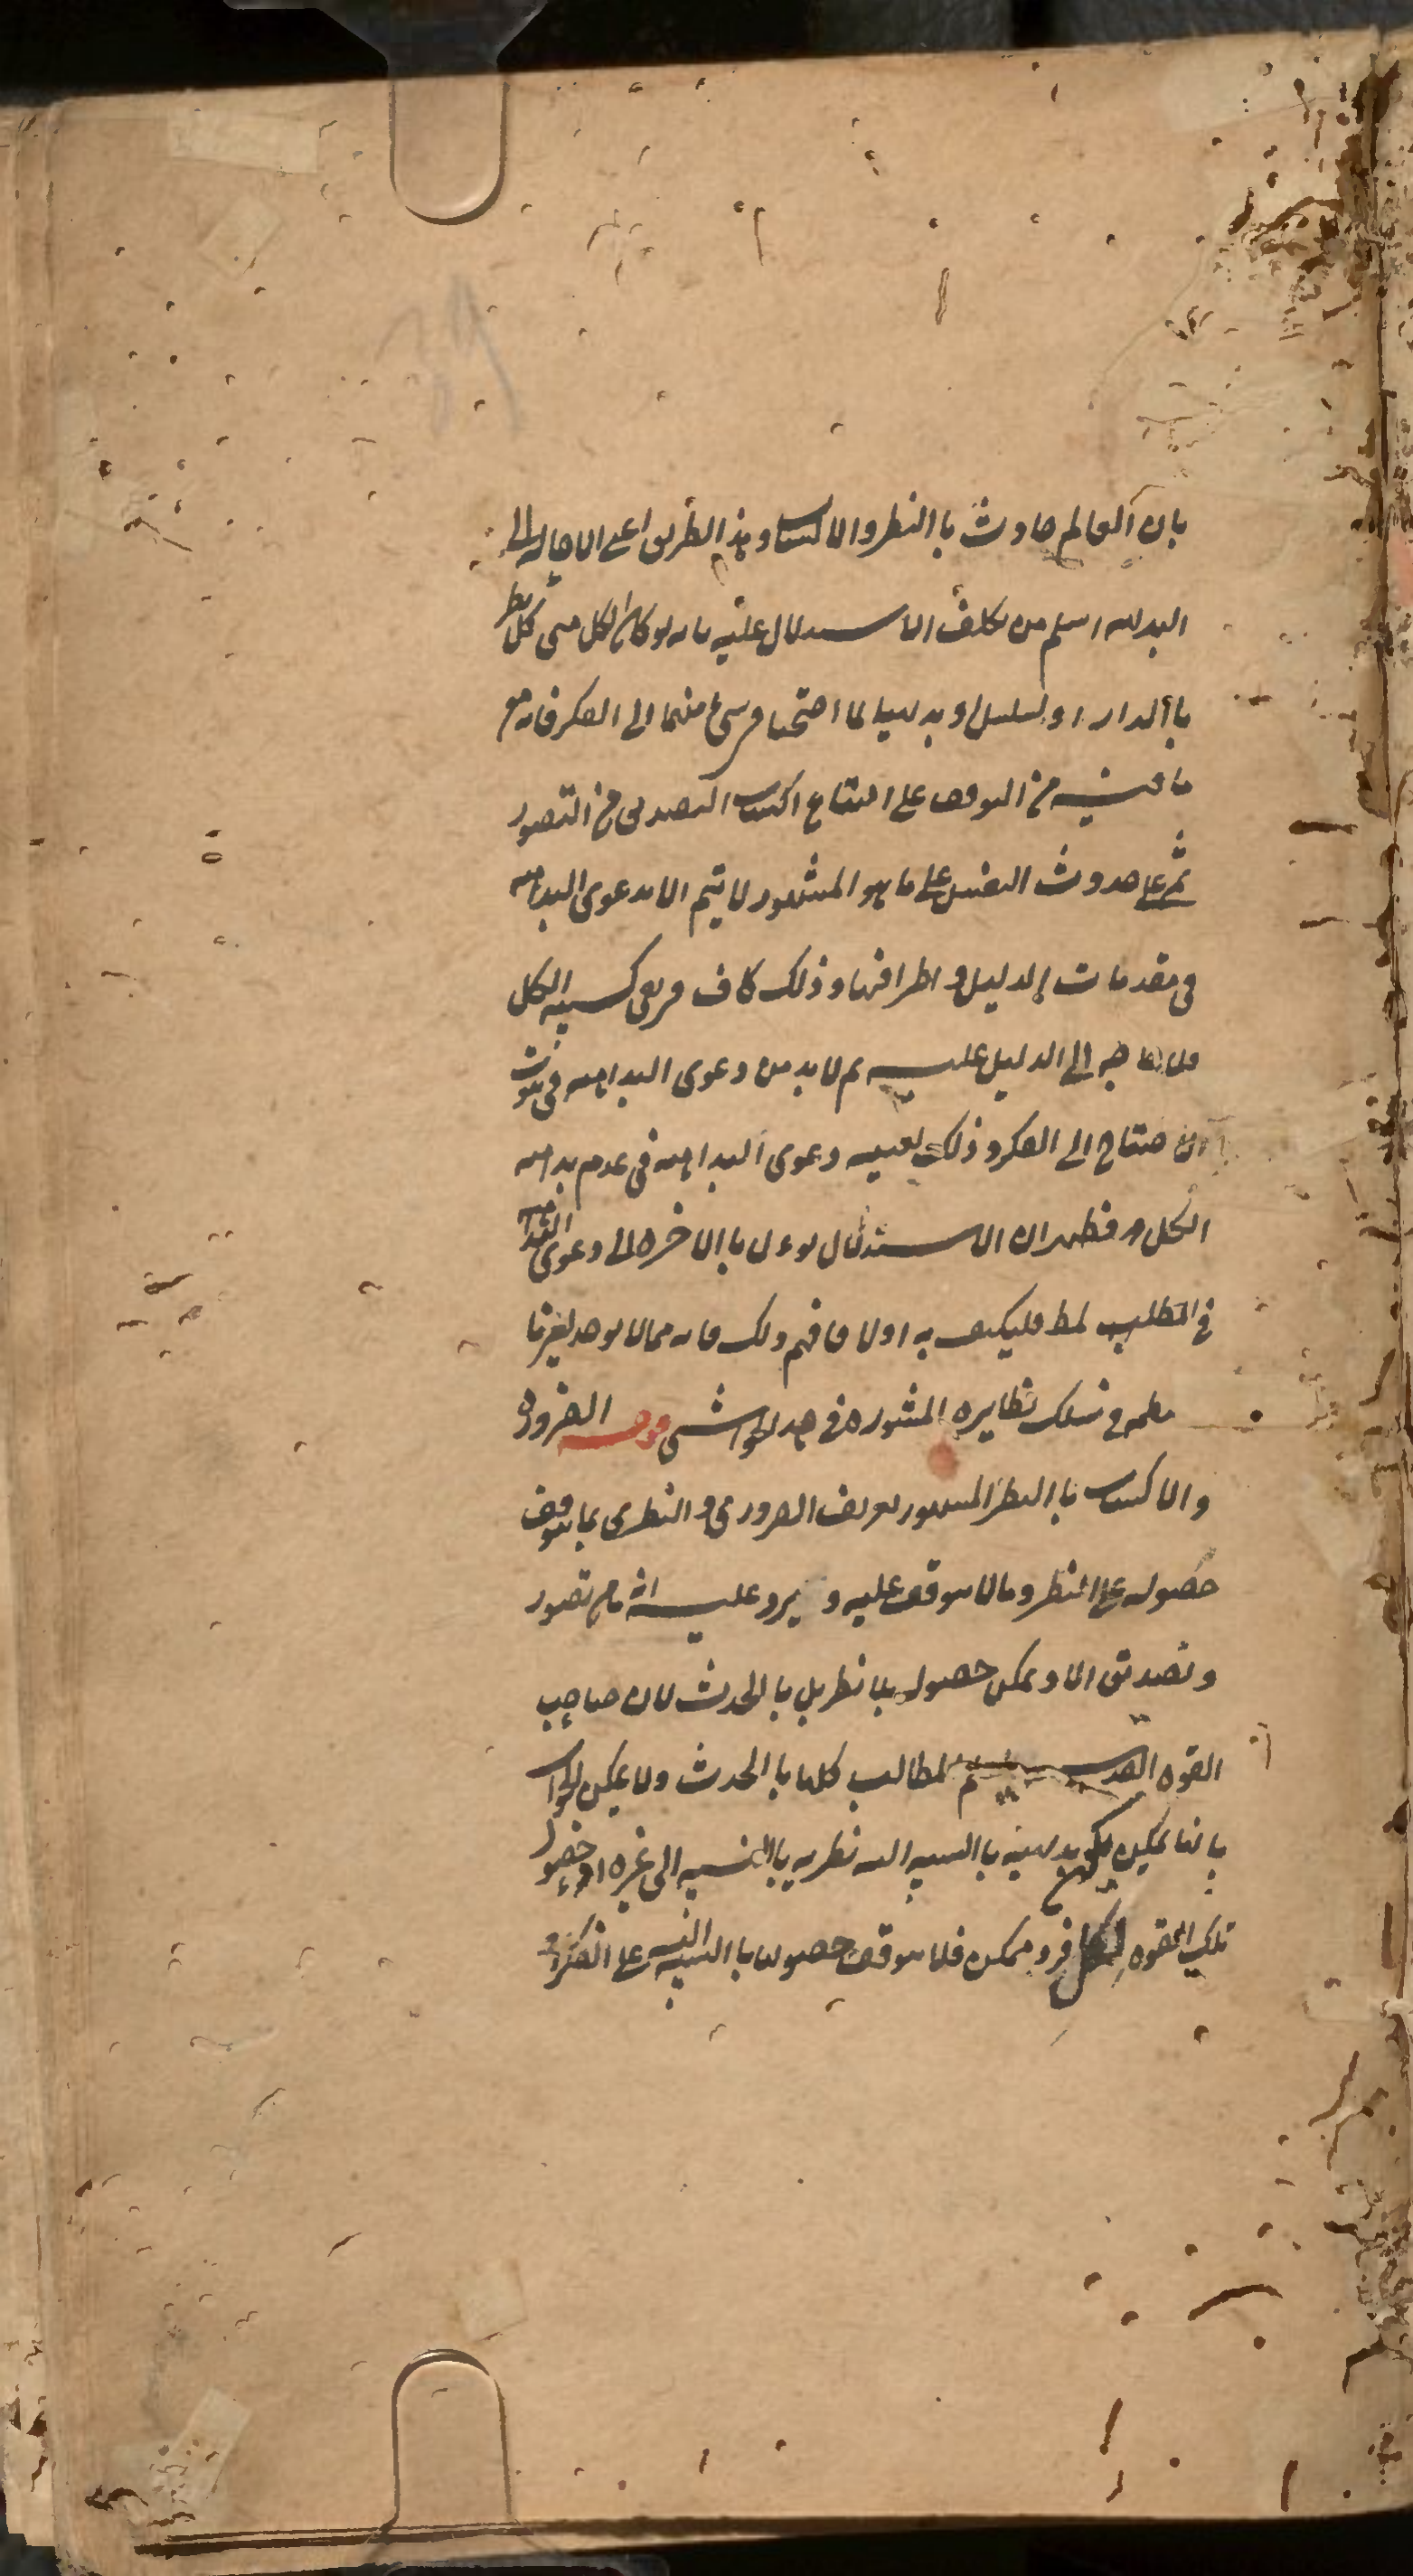 بان العالم حادث با النظر والاكتساب وهذا الطريق اعنى الاحاله الى
البديهه اسلم من تكلف الاستدلال عليه بانه لو كان الكل من كل نظريا
با لدار او لتسلسل او بديهيا لما احتجنا فى شىء منهما الى الفكر فانه مع
ما فيه من التوقف على امتناع اكتساب التصديق من التصور
ثم على حدوث النفس على ما هو المشهور لا يتم الا بدعوى البداهه
فى مقدمات الدليل و اطرافها وذلك كاف فى نفى كسبيه الكل
فلا حاجه الى الدليل عليه ثم لا بد من دعوى البداهه فى ثبوت
الاحتياج الى الفكر وذلك بعينه دعوى البداهه فى عدم بداهه
الكل فظهر ان الاستدلال يؤل با الاخره الى دعوى البداهه
فى المطلب فليكتف به اولا فافهم ذلك فانه مما لا يوجد لغيرنا
نظمه فى سلك نظايره المنثوره فى هذه الحواشى قوله الضروره
والاكتساب با النظر المشهور تعريف الضرورى و النظرى بما يتوقف
حصوله على النظر وما لا يتوقف عليه و يرد عليه انه ما من تصور
و تصديق الا و يمكن حصوله بلا نظر بل با الحدث لان صاحب
القوه القدسيه المطالب كلها با الحدث ولا يمكن الجواب
بانها يمكن يكون بديهيه با النسبه اليه نظريه با النسبه الى غيره اذ حصول
تلك القوه لكل فرد ممكن فلا يتوقف حصولها با النسبه على الفكر